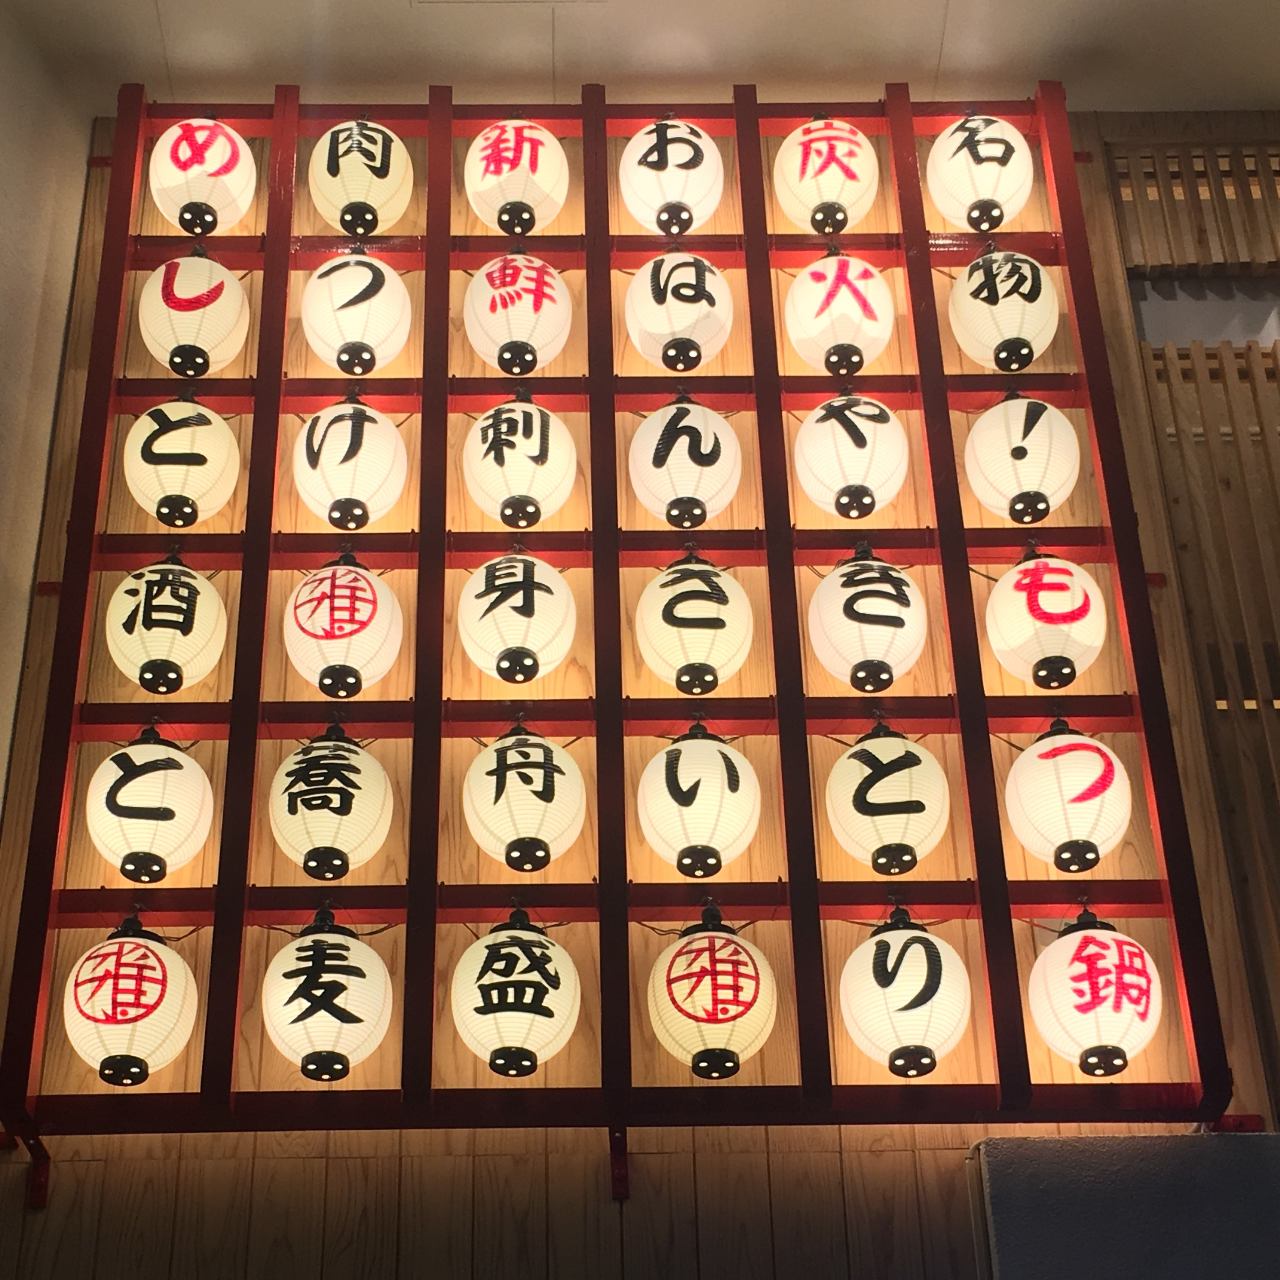 名物！もつ鍋
炭火やきとり
おばんざい雅
新鮮刺身舟盛
肉つけ雅蕎麦
めしと酒と雅